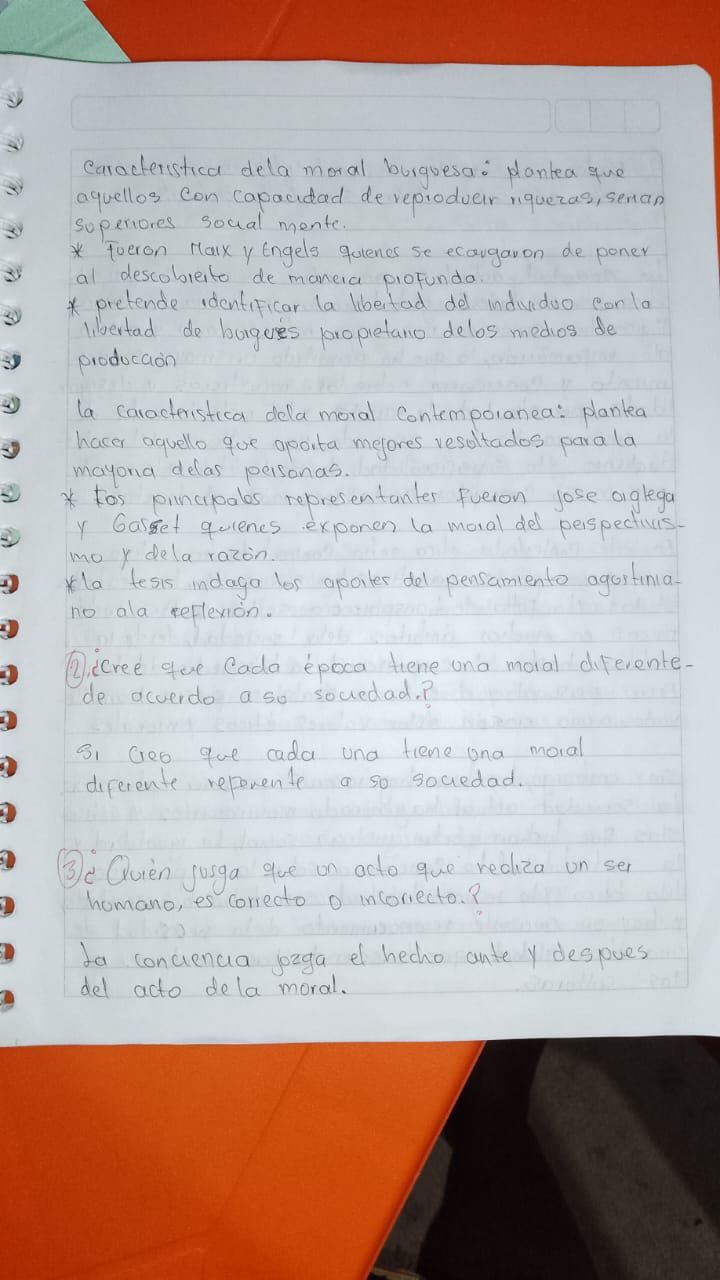 Caracteristica dela moral burguesa: plantea que
aquellos con capacidad de reproducir riquezas, serian
superiores social mente.
* Fueron Marx y Engels quienes se ecargaron de poner
al descobierto de manera profunda.
* pretende identificar la libertad del individuo con la
libertad de burgués propietario delos medios de
producción
la caracteristica dela moral contemporanea: plantea
hacer aquello que aporta mejores resoltados para la
mayoria delas personas.
* Los principales representantes fueron jose orglega
y Gasset quienes exponen la moral del perspectivis-
mo y dela razón.
* la tesis indaga los aportes del pensamiento agostinia-
no ala reflexión.
②. ¿Creé que cada época tiene una moral diferente-
de acuerdo a so sociedad.?
Si creo que cada una tiene una moral
diferente referente a so sociedad.
③ ¿ Quién jusga que un acto que realiza un ser
humano, es correcto o incorrecto.?
La conciencia jozga el hecho ante y despues
del acto dela moral.